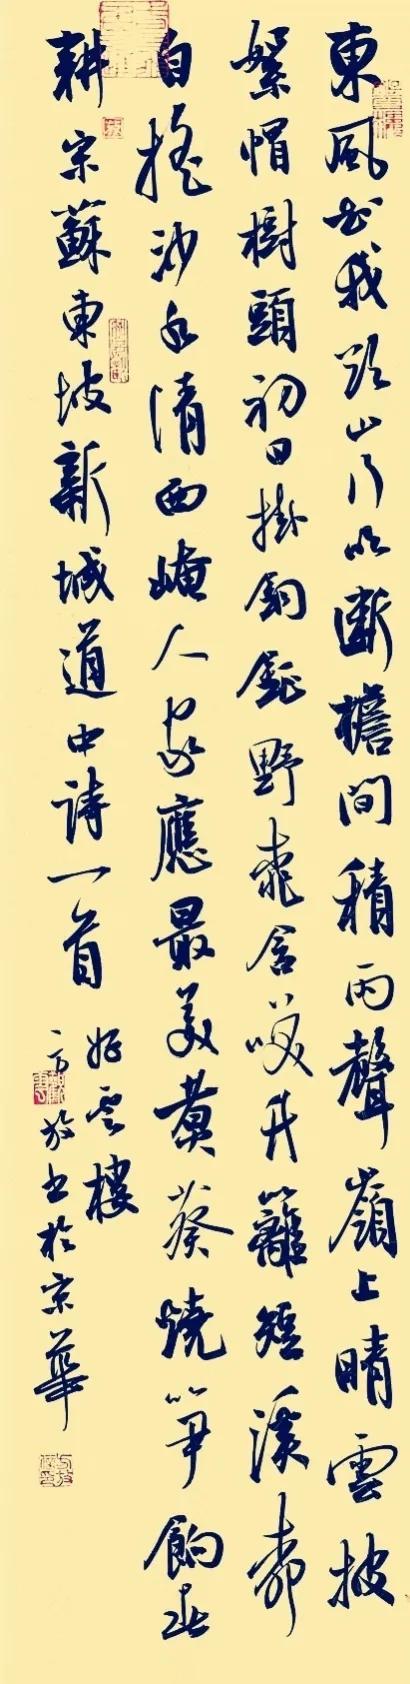 東風知我欲山行吹斷檐間積雨聲嶺上晴雲披
絮帽樹頭初日掛銅鉦野桃含笑竹籬短溪柳
自搖沙水清西崦人家應最美煮葵燒笋餉春
耕宋蘇東坡新城道中詩一首
好雲樓
方放书於京華